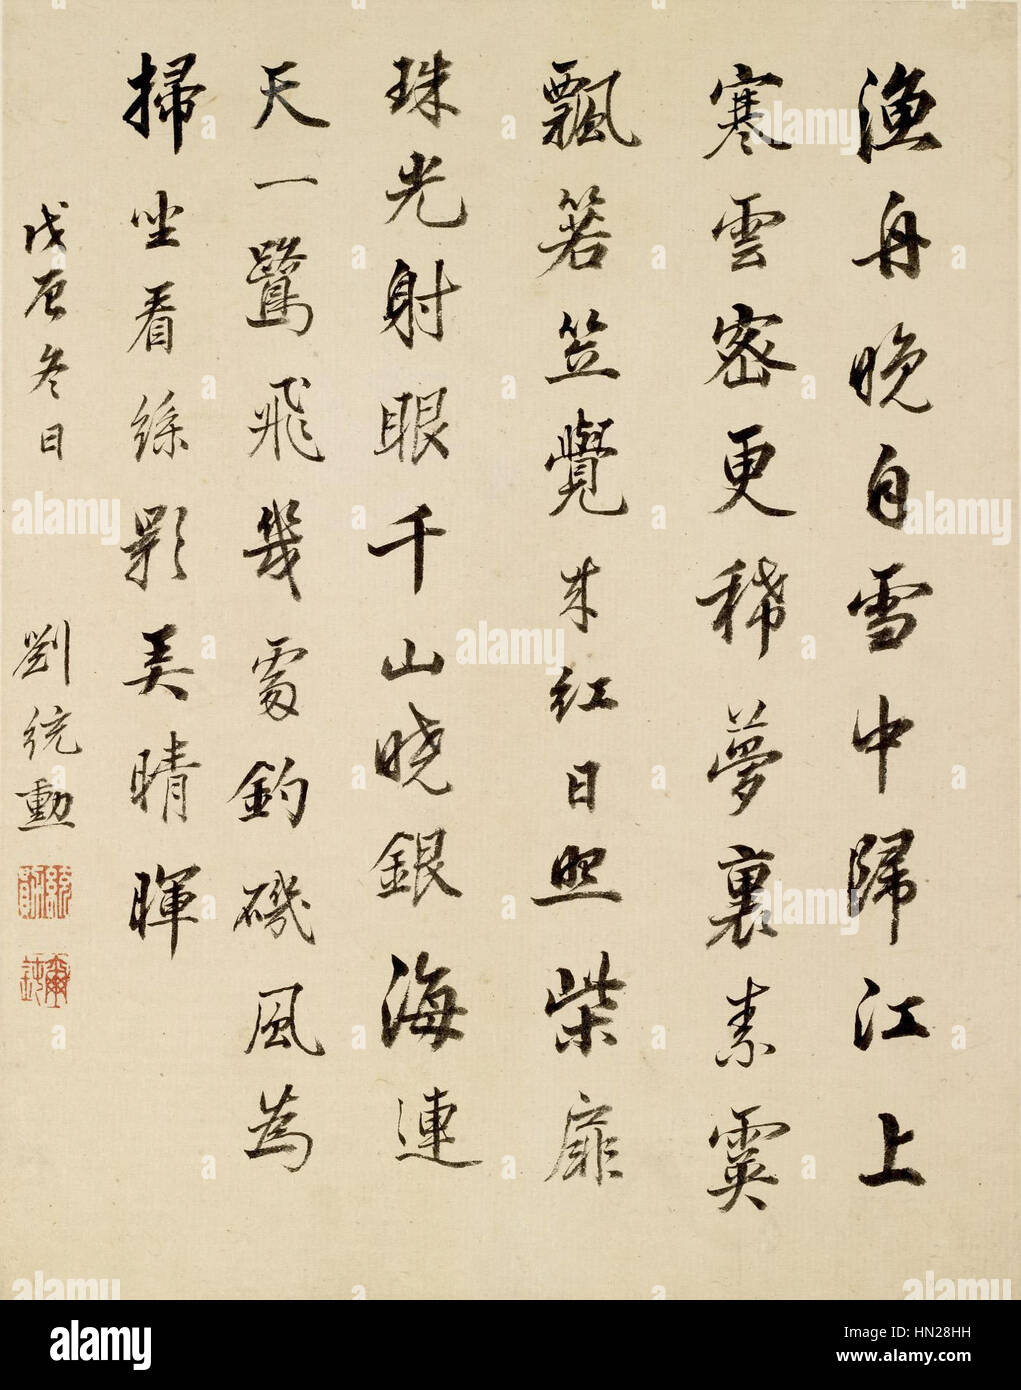 漁舟晚自雪中歸江上
寒雲密更稀夢裏素霙
飄箬笠覺來紅日照柴扉
珠光射眼千山曉銀海連
天一鷺飛幾處釣磯風為
掃坐看絲影美晴暉
戊辰冬日
劉統勳
alamy
a
alamy
HN28HH
www.alamy.com